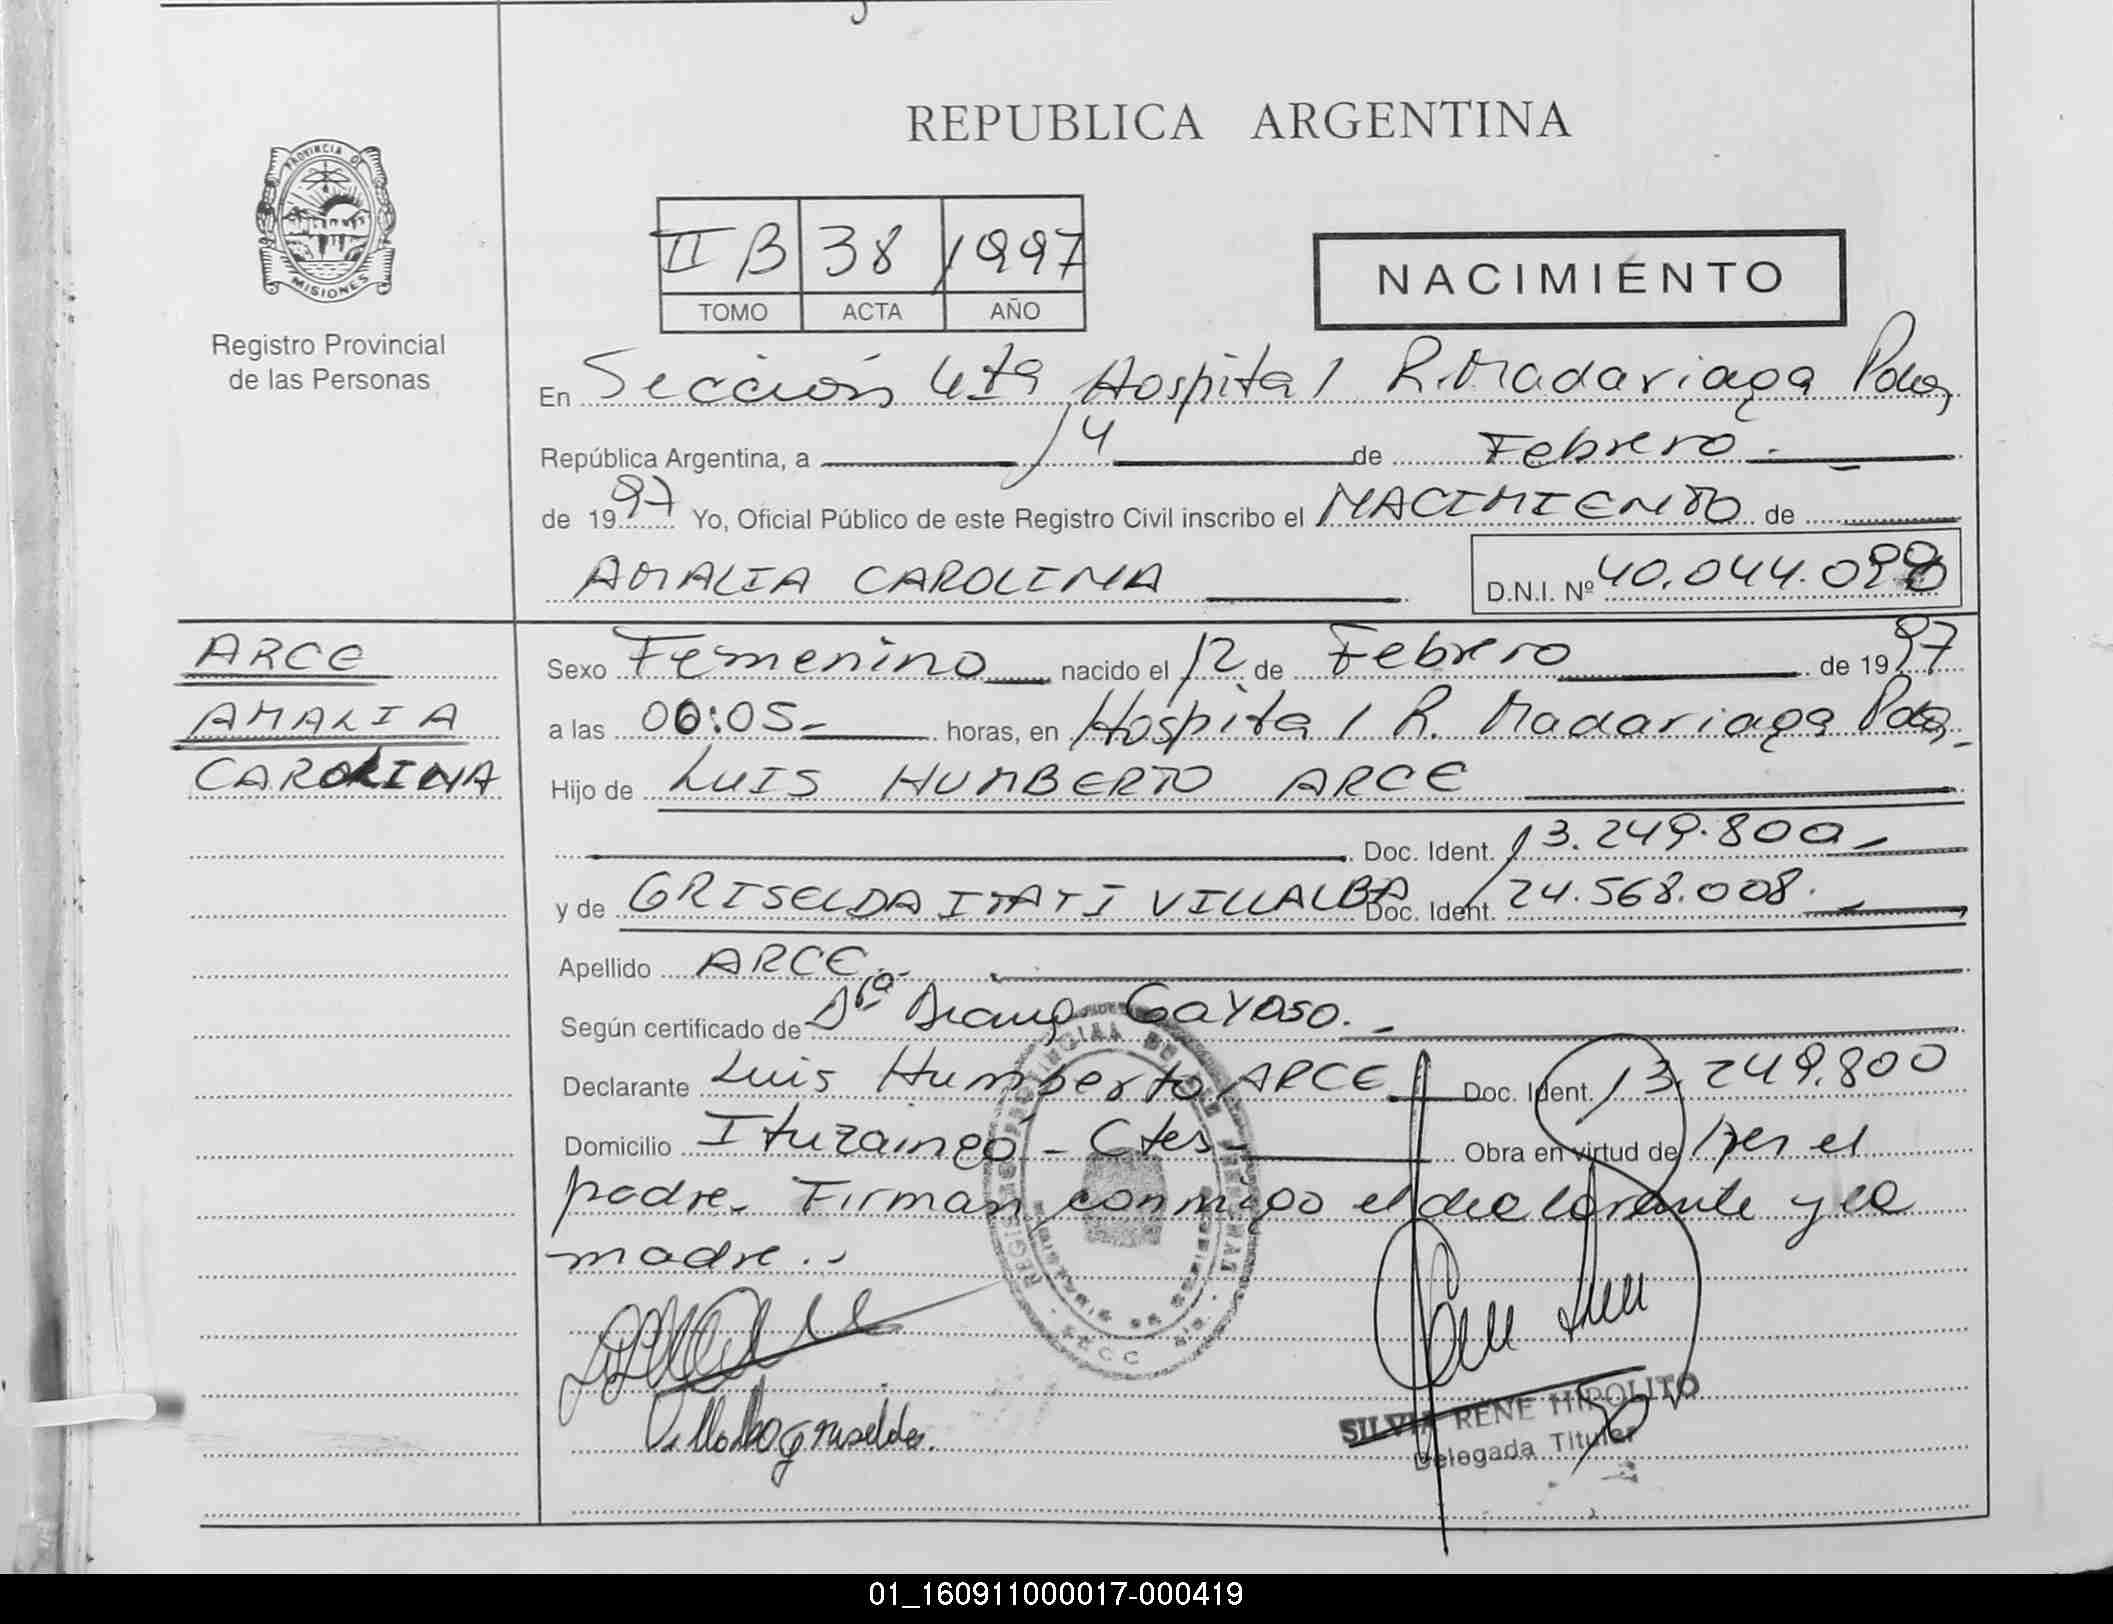 REPUBLICA ARGENTINA
PROVINCIA DE
MISIONES
Registro Provincial
de las Personas
II B 38 1997
TOMO ACTA AÑO
NACIMIENTO
En Sección 4ta Hospital R. Madariaga Pdas,
República Argentina, a 14 de Febrero.
de 1997 Yo, Oficial Público de este Registro Civil inscribo el NACIMIENTO de
AMALIA CAROLINA D.N.I. Nº 40.044.098
ARCE
AMALIA
CAROLINA
Sexo Femenino nacido el 12 de Febrero de 1997
a las 00:05.- horas, en Hospital R. Madariaga Pdas.-
Hijo de LUIS HUMBERTO ARCE
Doc. Ident. 13.249.800.-
y de GRISELDA ITATI VILLALBA Doc. Ident. 24.568.008.-
Apellido ARCE.-
Según certificado de Dra Gayoso.-
Declarante Luis Humberto ARCE Doc. Ident. 13.249.800
Domicilio Ituzaingó - Ctes.- Obra en virtud de ser el
padre. Firman conmigo el declarante y la
madre.-
Villalba griselda.
SILVIA RENE HIPOLITO
Delegada Titular
01_160911000017-000419